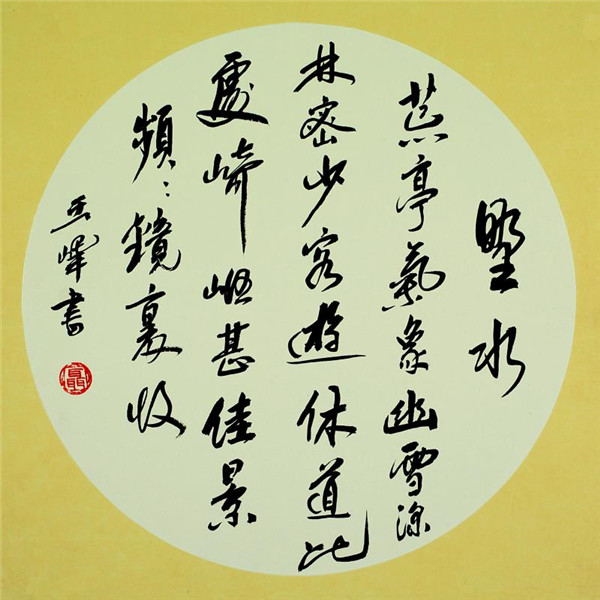 聖水
荒亭氣象幽雪深
林密少客遊休道此
處崎嶇甚佳景
頻頻鏡裏收
玉峰書